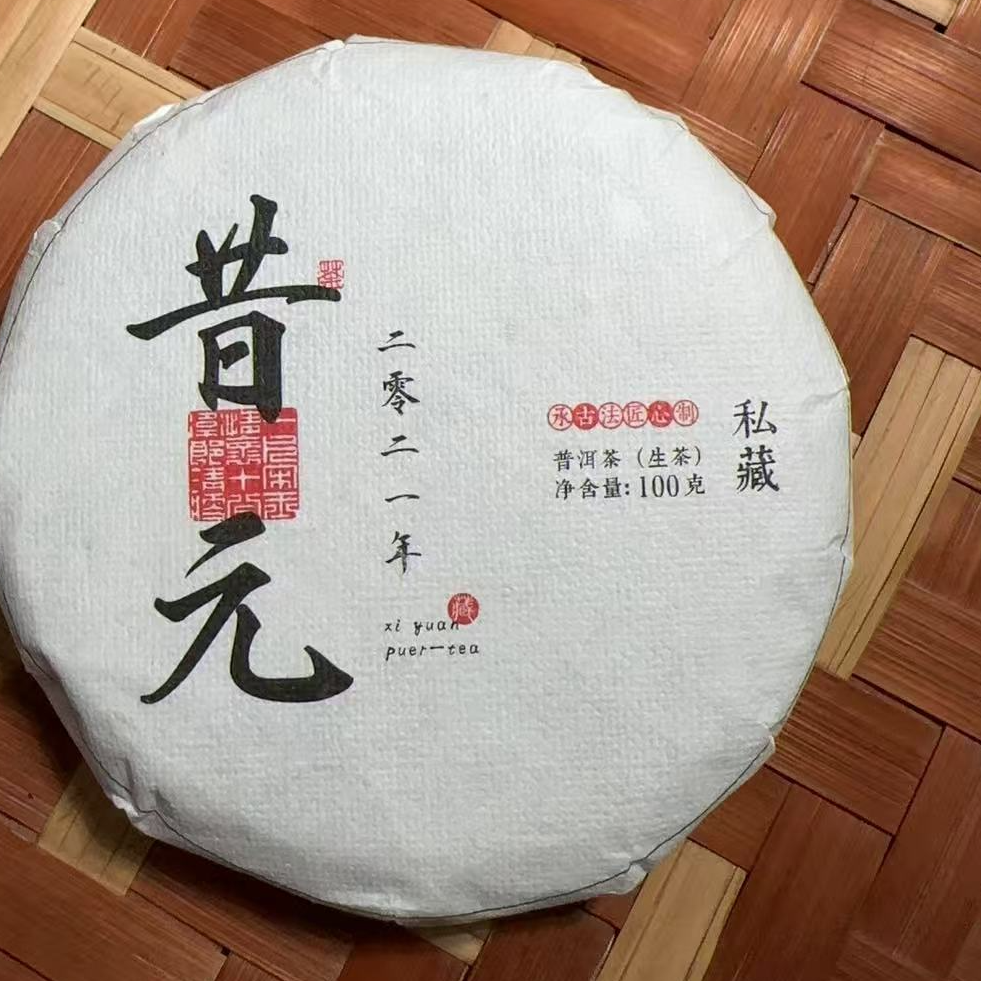 昔元
茶
二零二一年
藏
xi yuan
puer-tea
承古法匠心制
普洱茶（生茶）
净含量:100克
私藏